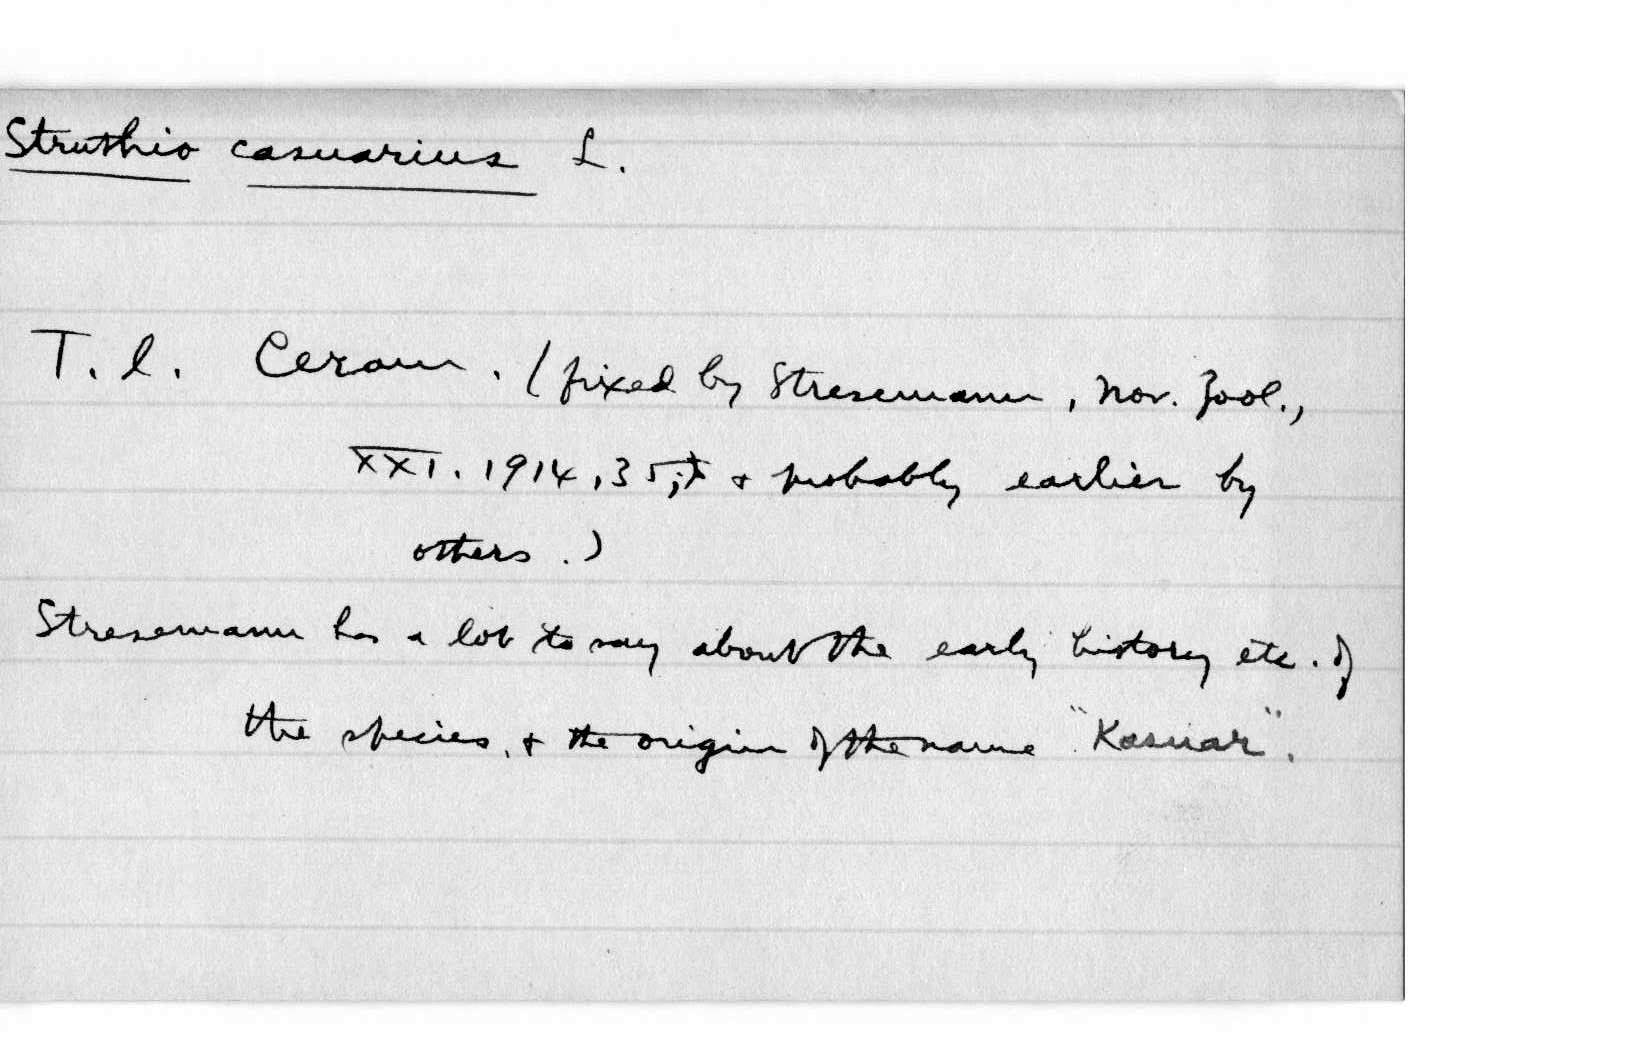 Struthio casuarius L.
T. l. Ceram. (fixed by Stresemann, Nov. Zool.,
XXI. 1914, 35; & probably earlier by
others.)
Stresemann has a lot to say about the early history etc. of
the species, & the origin of the name "Kasuar".